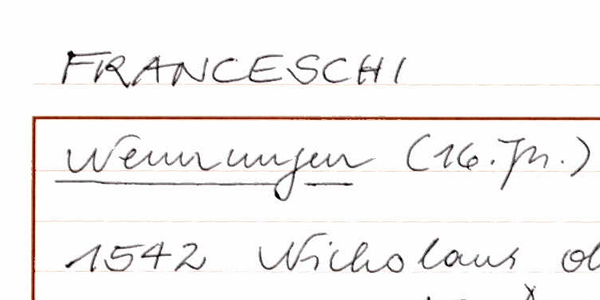 FRANCESCHI
Nennungen (16. Jh.)
1542 Nicholaus